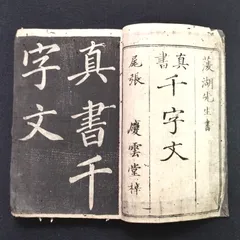 菱湖先生書
真書
千字文
尾張 慶雲堂梓
真書千
字文